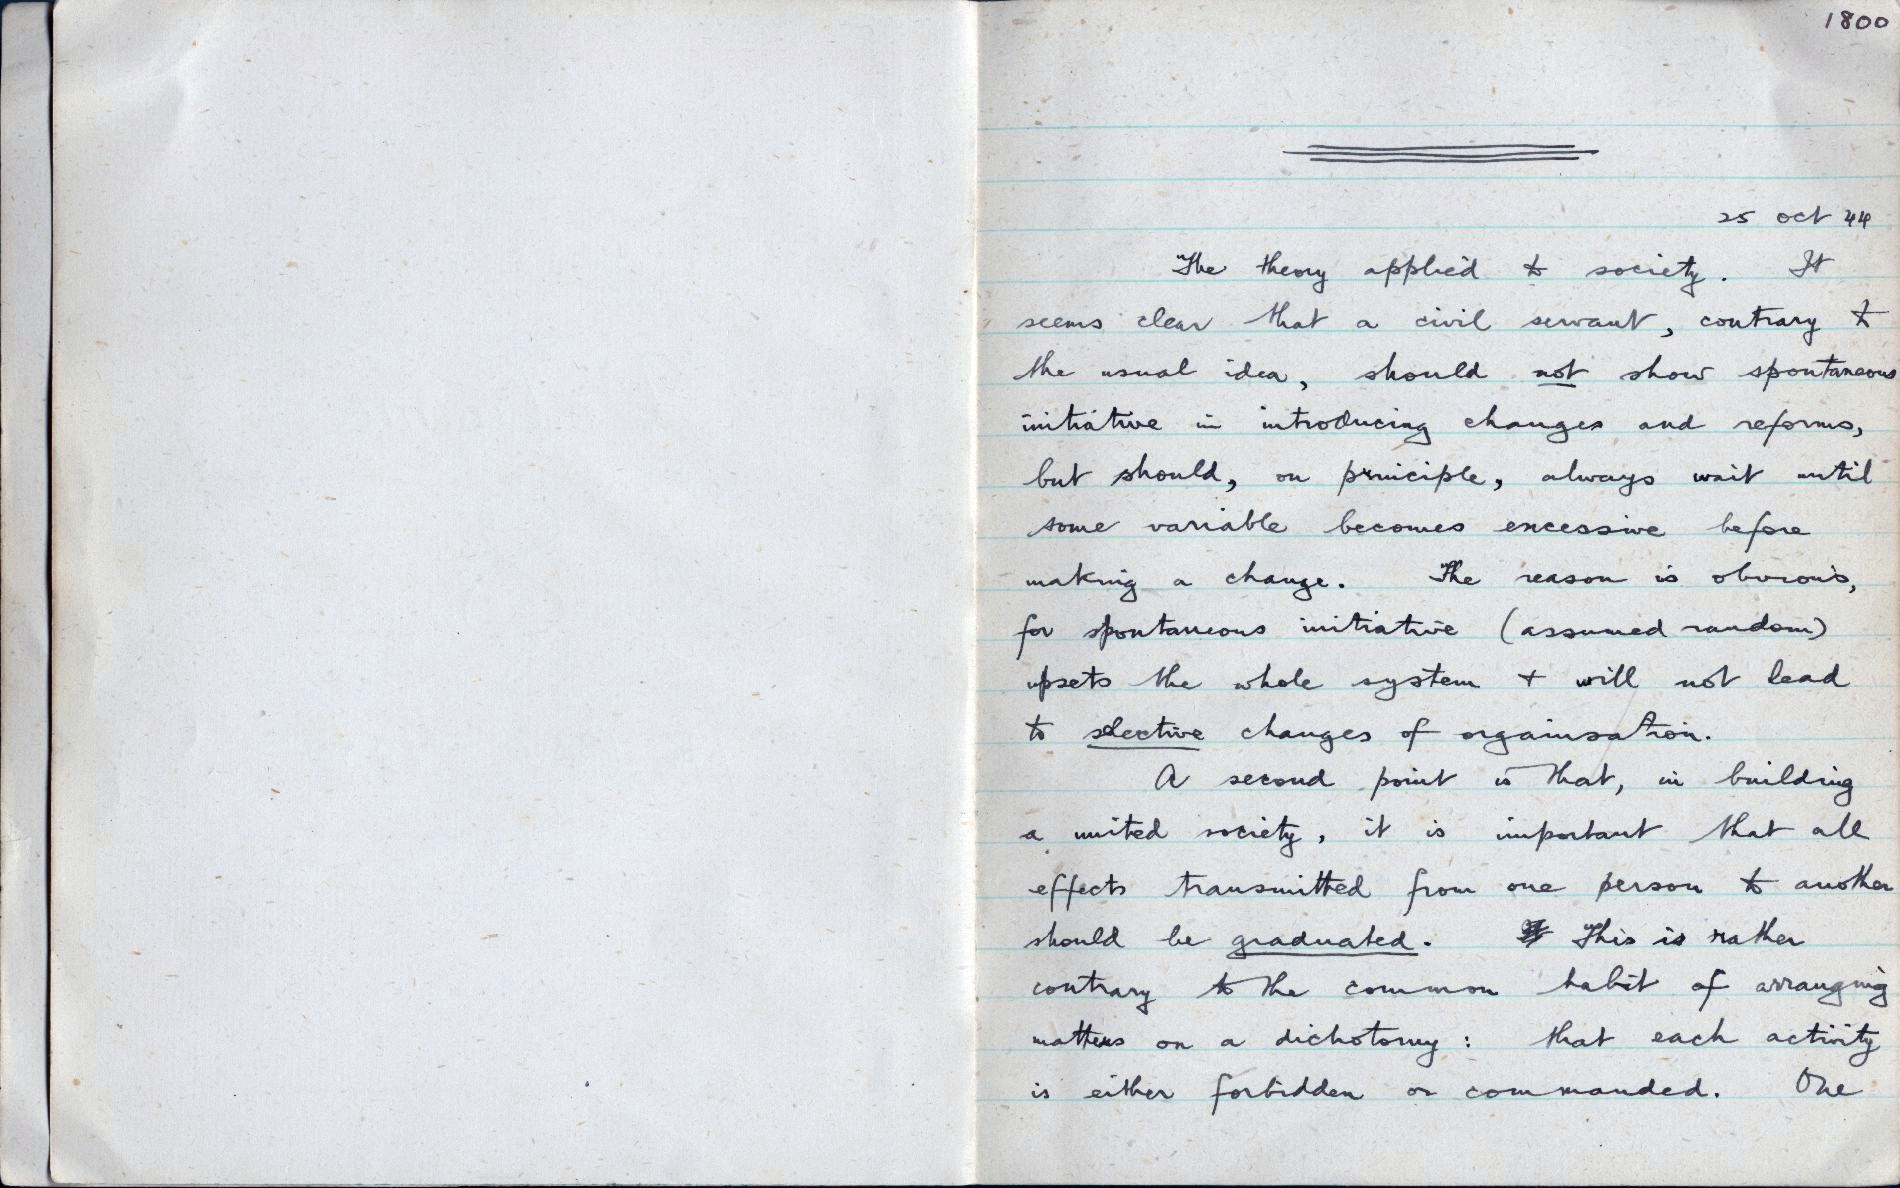 1800
25 oct 44
The theory applied to society. It
seems clear that a civil servant, contrary to
the usual idea, should not show spontaneous
initiative in introducing changes and reforms,
but should, on principle, always wait until
some variable becomes excessive before
making a change. The reason is obvious,
for spontaneous initiative (assumed random)
upsets the whole system + will not lead
to selective changes of organisation.
A second point is that, in building
a united society, it is important that all
effects transmitted from one person to another
should be graduated. This is rather
contrary to the common habit of arranging
matters on a dichotomy: that each activity
is either forbidden or commanded. One